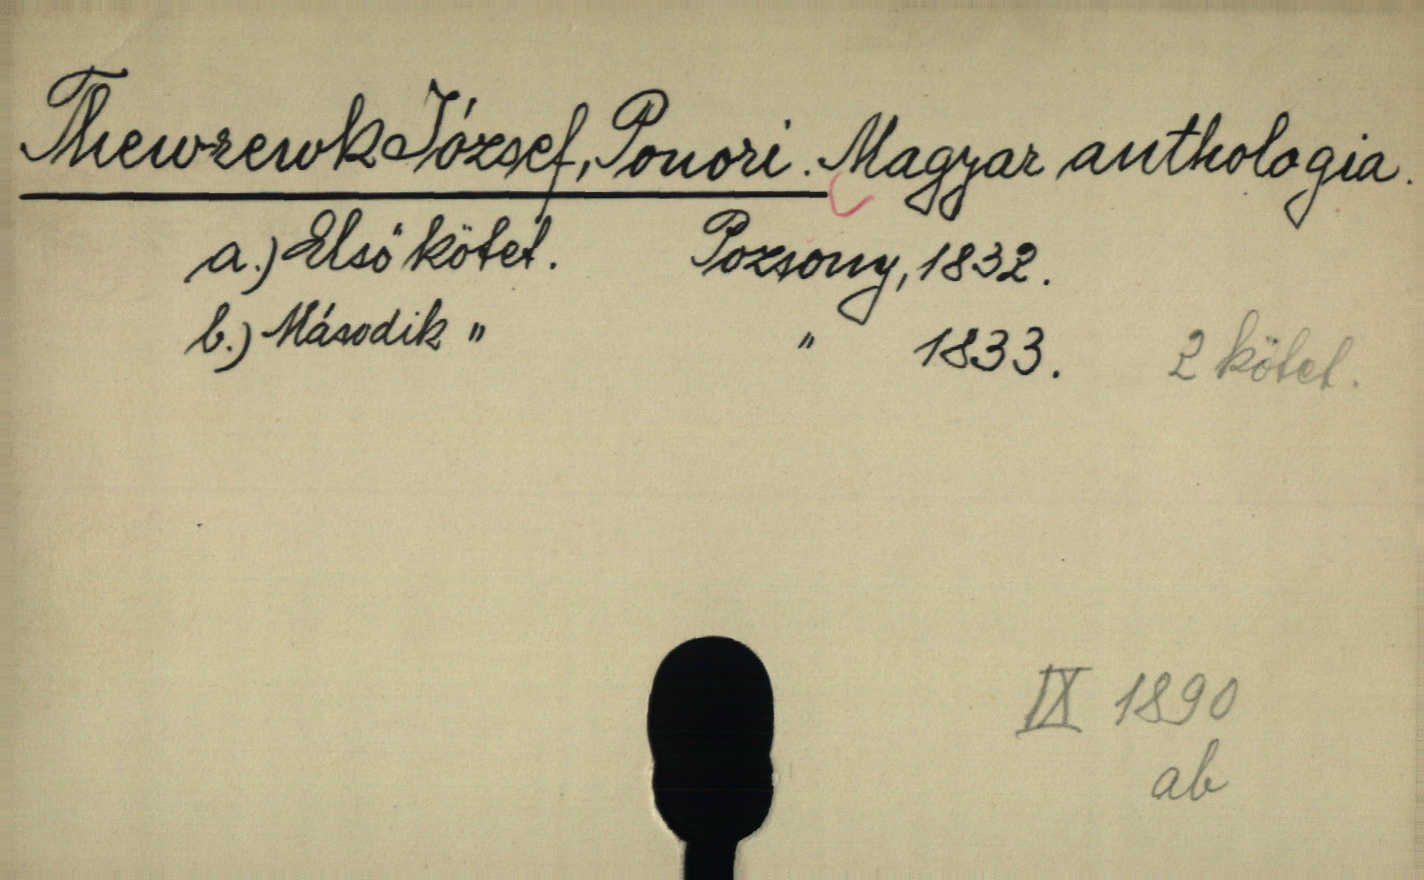 Thewrewk József, Ponori. Magyar anthologia.
a.) Első kötet. Pozsony, 1832.
b.) Második " " 1833. 2 kötet.
IX 1890
ab